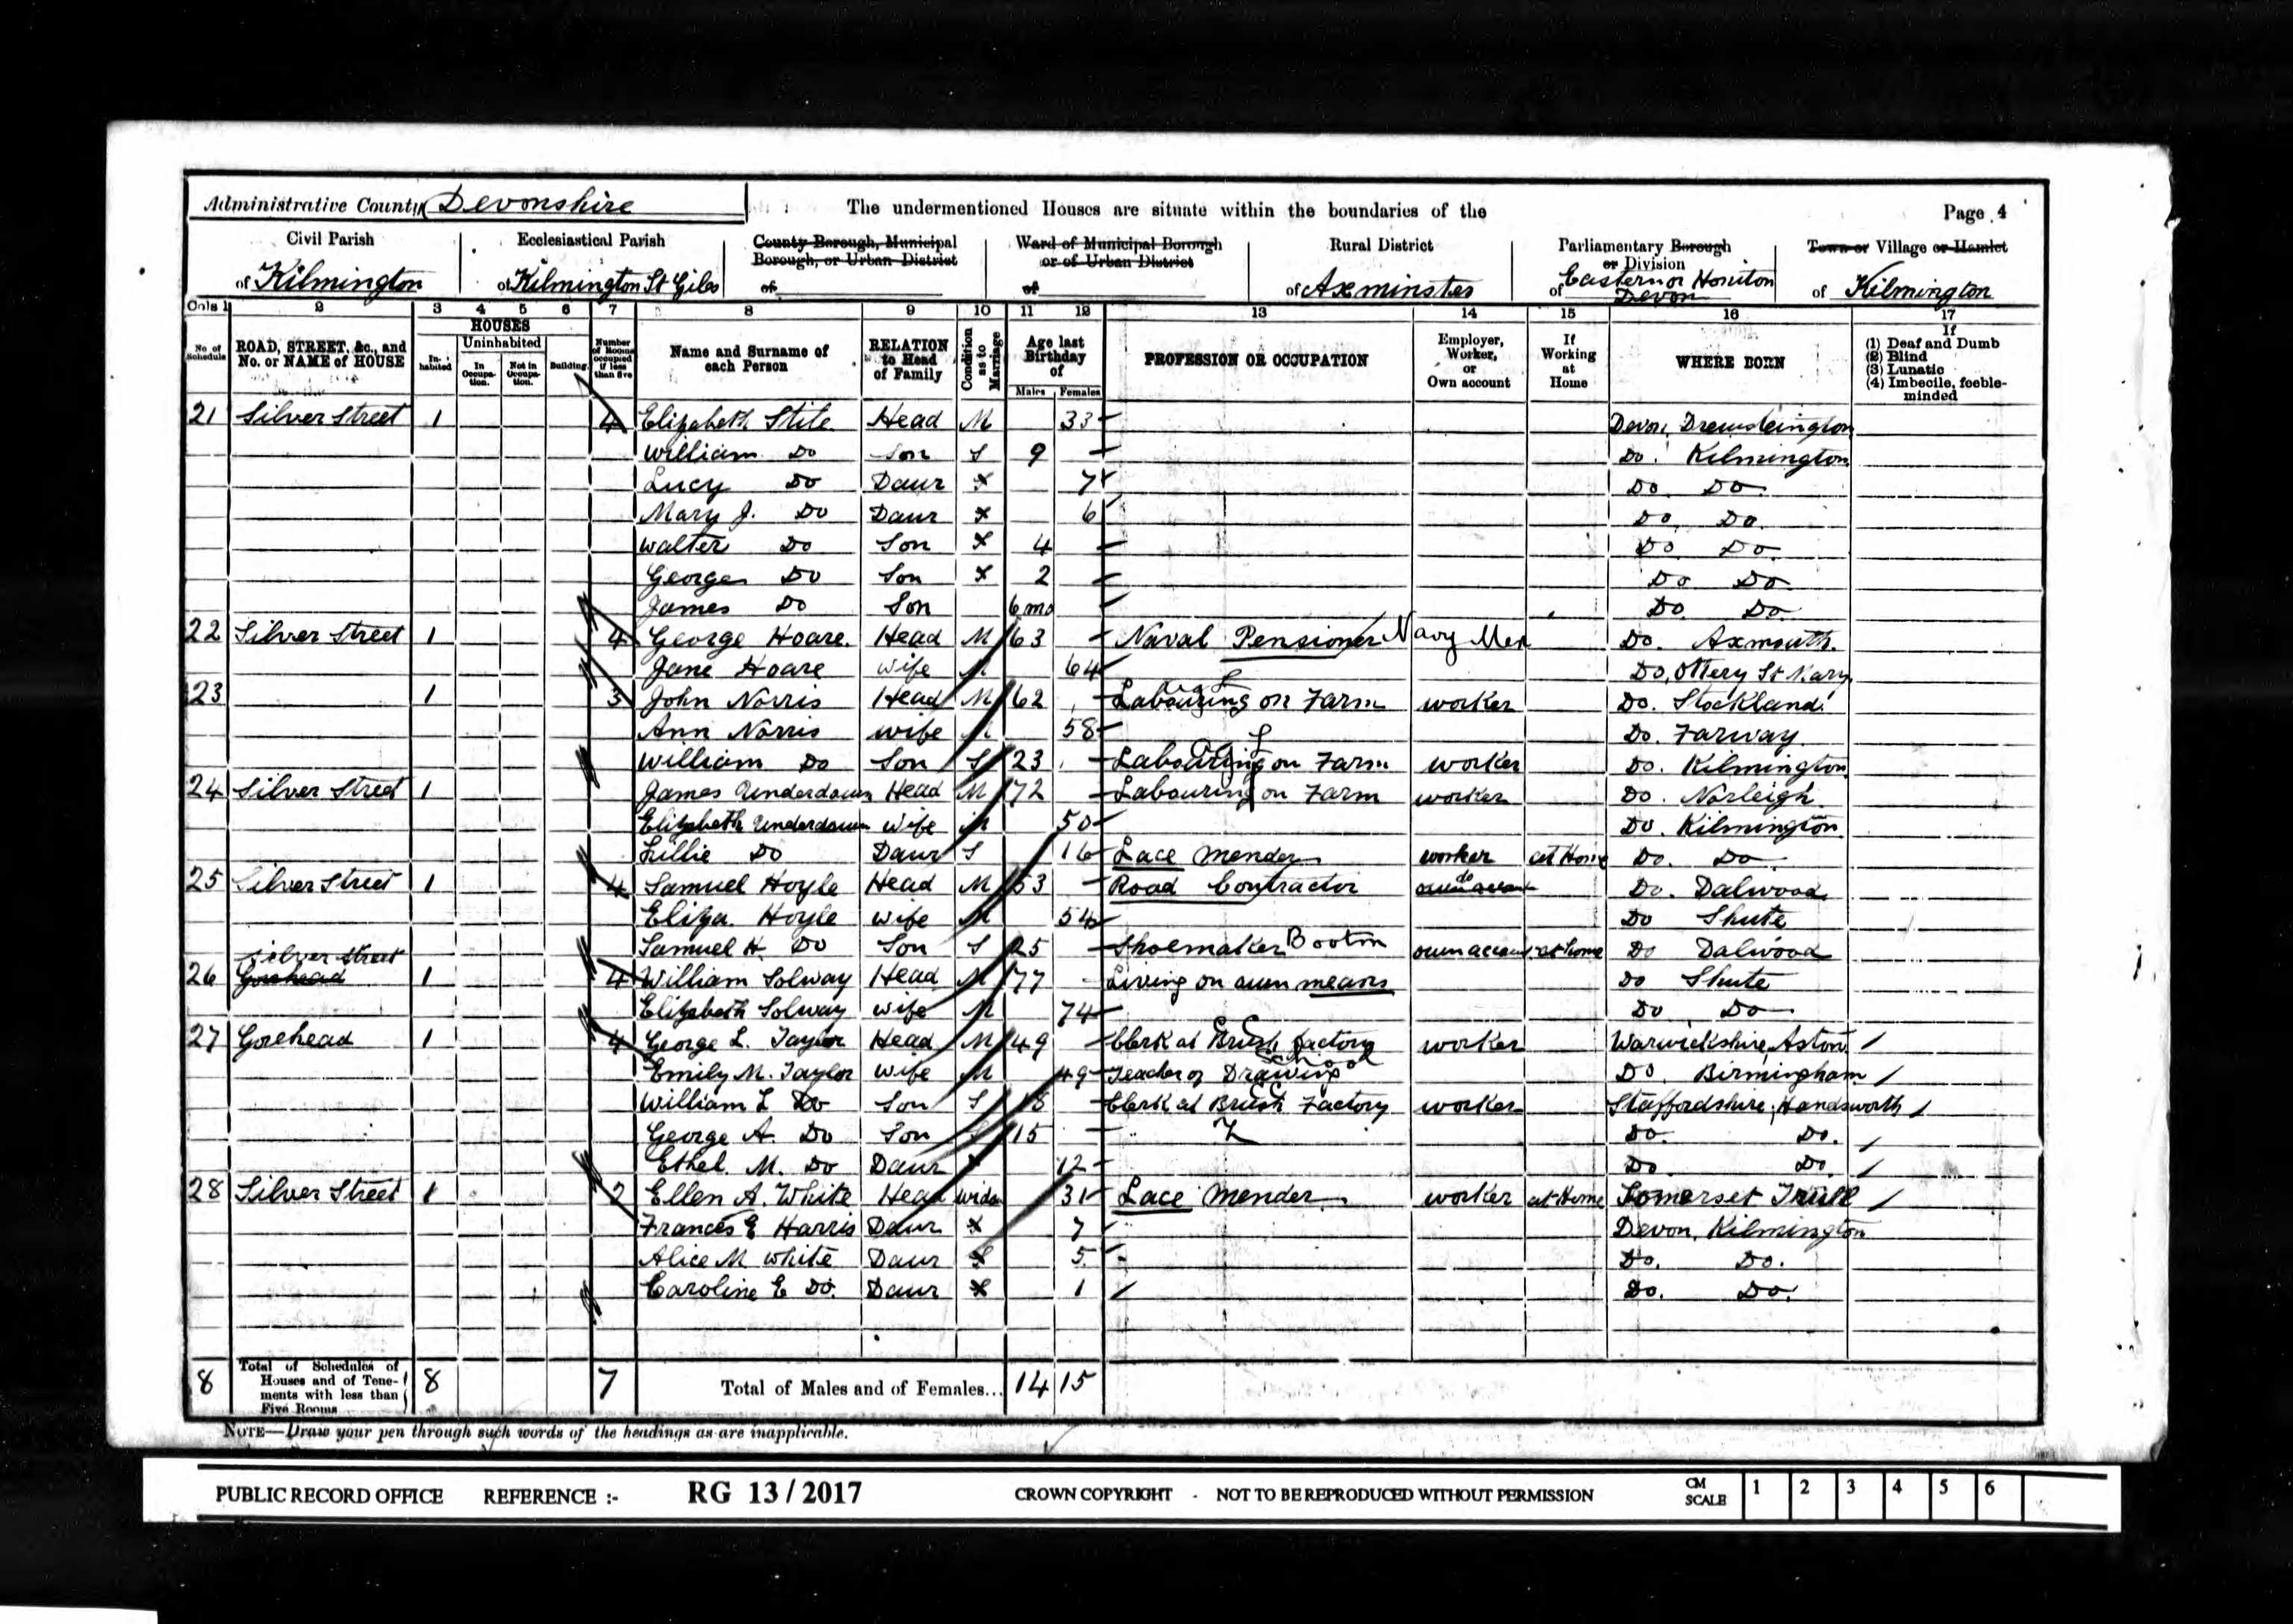 Administrative County Devonshire The undermentioned Houses are situate within the boundaries of the Page 4
Civil Parish Ecclesiastical Parish County Borough, Municipal Borough, or Urban District Ward of Municipal Borough or of Urban District Rural District Parliamentary Borough or Division Town or Village or Hamlet
of Kilmington of Kilmington St Giles of of of Axminster of Eastern or Honiton Devon of Kilmington
Cols 1 2 3 4 5 6 7 8 9 10 11 12 13 14 15 16 17
No of Schedule ROAD, STREET, &c., and No. or NAME of HOUSE HOUSES In-habited Uninhabited In Occupa-tion. Not in Occupa-tion. Building. Number of Rooms occupied if less than five Name and Surname of each Person RELATION to Head of Family Condition as to Marriage Age last Birthday of Males Females PROFESSION OR OCCUPATION Employer, Worker, or Own account If Working at Home WHERE BORN If (1) Deaf and Dumb (2) Blind (3) Lunatic (4) Imbecile, feeble-minded
21 Silver Street 1 4 Elizabeth Stile Head M 33 Devon, Drewsteington
William Do Son S 9 Do. Kilmington
Lucy Do Daur 7 Do Do
Mary J. Do Daur 6 Do. Do.
Walter Do Son 4 Do Do
George Do Son 2 Do Do
James Do Son 6 mo Do. Do
22 Silver Street 1 4 George Hoare. Head M 63 Naval Pensioner Navy Men Do. Axmouth.
Jane Hoare wife M 64 Do. Ottery St Mary
23 1 3 John Norris Head M 62 Labouring on Farm worker Do. Stockland
Ann Norris wife M 58 Do. Farway.
William Do Son S 23 Labouring on Farm worker Do. Kilmington
24 Silver Street 1 James Underdown Head M 72 Labouring on Farm worker Do. Norleigh
Elizabeth Underdown wife M 50 Do. Kilmington
Lillie Do Daur S 16 Lace Mender worker at Home Do. Do
25 Silver Street 1 4 Samuel Hoyle Head M 53 Road Contractor do Do. Dalwood
Eliza. Hoyle wife M 54 Do Shute
Samuel H. Do Son S 25 Shoemaker Bootm own account at home Do Dalwood
Silver Street
26 Gorehead 1 4 William Solway Head M 77 Living on own means Do Shute
Elizabeth Solway wife M 74 Do Do
27 Gorehead 1 4 George L. Taylor Head M 49 Clerk at Brush Factory worker Warwickshire, Aston
Emily M. Taylor wife M 49 Teacher of Drawing School Do. Birmingham
William L Do Son S 18 Clerk at Brush Factory worker Staffordshire, Handsworth
George A. Do Son S 15 Do. Do.
Ethel. M. Do Daur 12 Do Do
28 Silver Street 1 2 Ellen A. White Head wido 31 Lace Mender worker at Home Somerset Trull
Frances E Harris Daur 7 Devon, Kilmington
Alice M White Daur 5 Do. Do.
Caroline E Do. Daur 1 Do. Do.
8 Total of Schedules of Houses and of Tene-ments with less than Five Rooms 8 7 Total of Males and of Females... 14 15
NOTE—Draw your pen through such words of the headings as are inapplicable.
PUBLIC RECORD OFFICE REFERENCE :- RG 13 / 2017 CROWN COPYRIGHT - NOT TO BE REPRODUCED WITHOUT PERMISSION CM SCALE 1 2 3 4 5 6